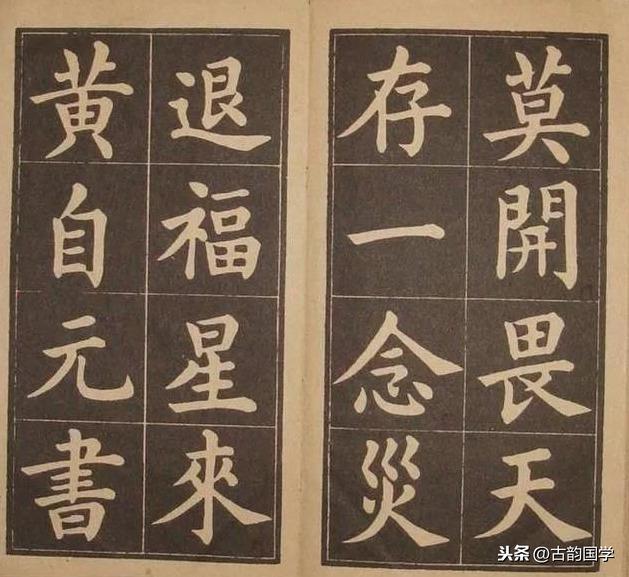 莫開畏天
存一念災
退福星來
黄自元書
头条@古韵国学